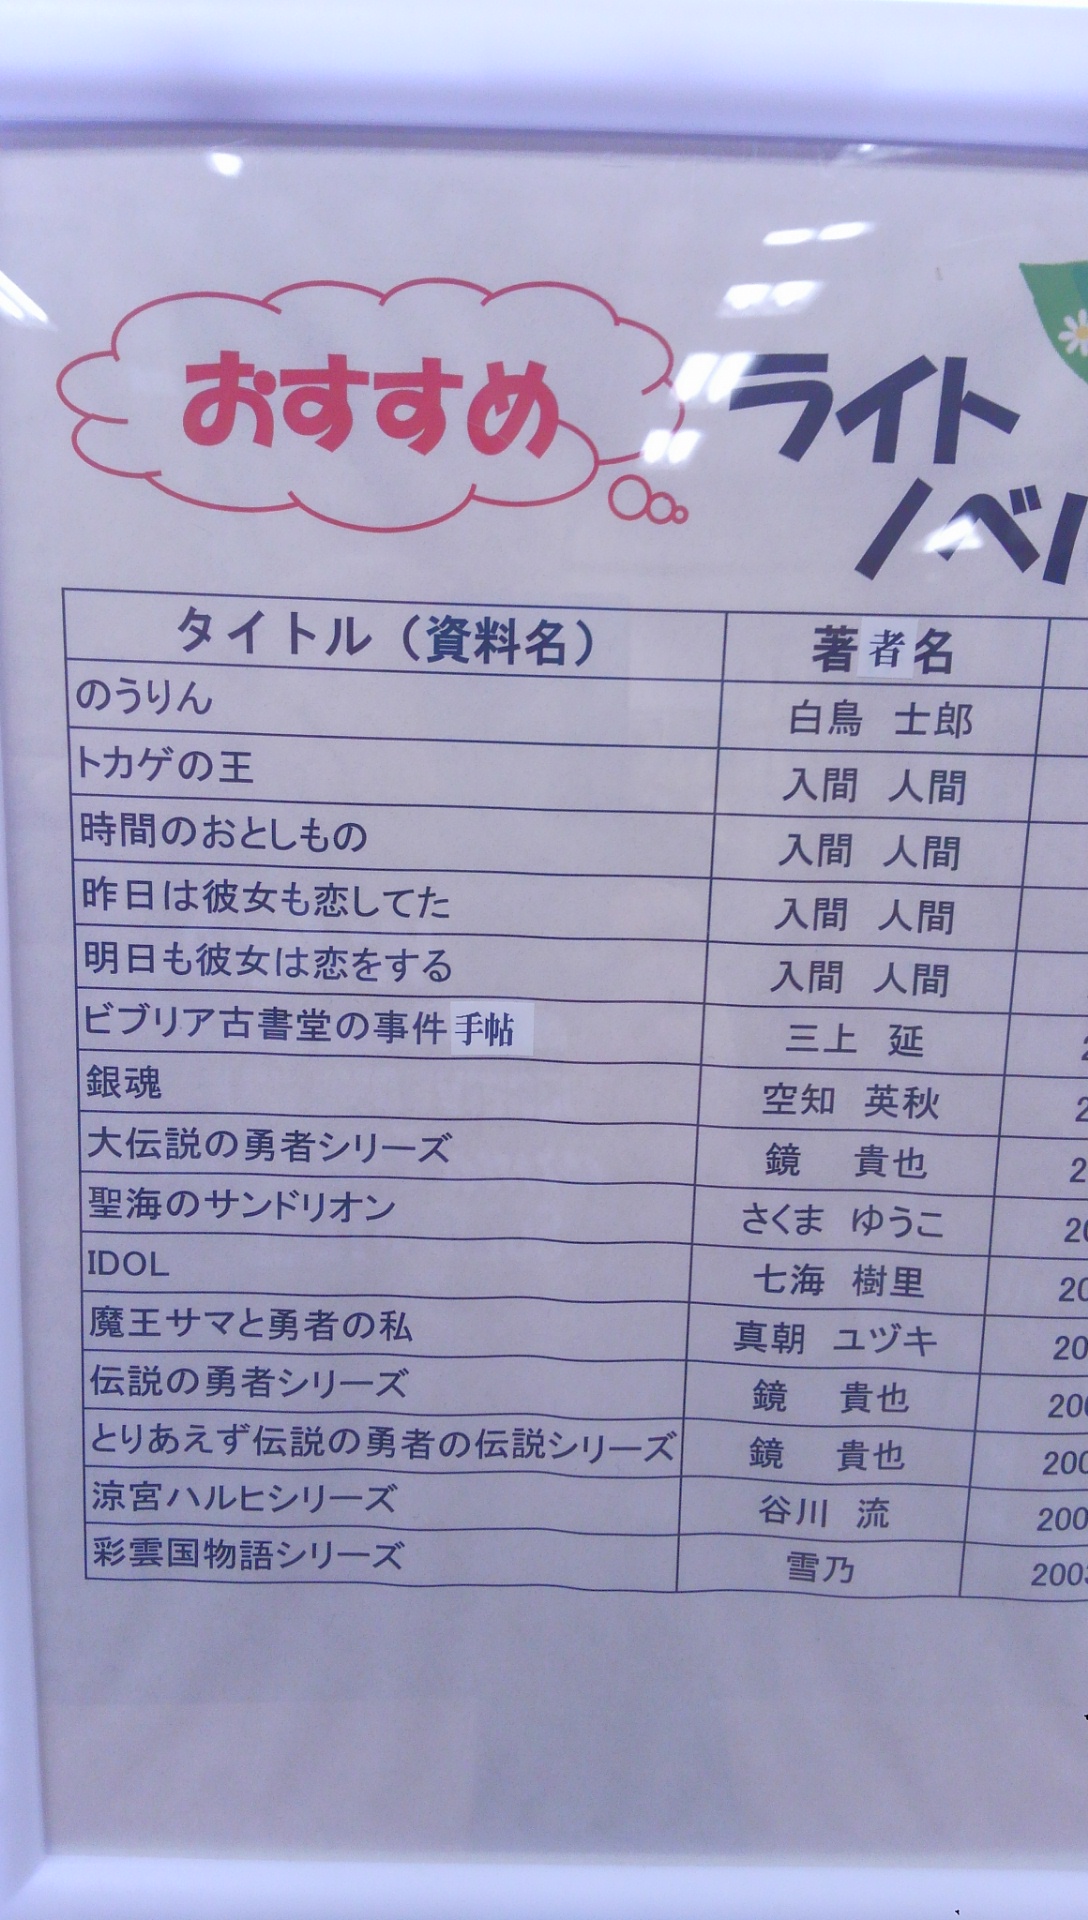 おすすめ
ライト
ノベル
タイトル（資料名） 著者名
のうりん 白鳥 士郎
トカゲの王 入間 人間
時間のおとしもの 入間 人間
昨日は彼女も恋してた 入間 人間
明日も彼女は恋をする 入間 人間
ビブリア古書堂の事件手帖 三上 延 2
銀魂 空知 英秋 2
大伝説の勇者シリーズ 鏡 貴也 2
聖海のサンドリオン さくま ゆうこ 20
IDOL 七海 樹里 20
魔王サマと勇者の私 真朝 ユヅキ 20
伝説の勇者シリーズ 鏡 貴也 200
とりあえず伝説の勇者の伝説シリーズ 鏡 貴也 200
涼宮ハルヒシリーズ 谷川 流 200
彩雲国物語シリーズ 雪乃 2003